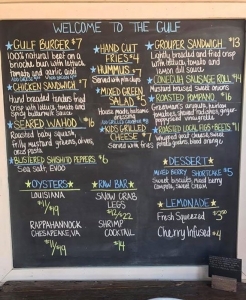 WELCOME TO THE GULF
GULF BURGER $7
100% natural beef on a
brioche bun with lettuce,
tomato and garlic aioli
CHICKEN SANDWICH $7
Hand breaded tenders fried
with lettuce, tomato and
spicy buttermilk sauce
SEARED WAHOO $16
Roasted baby squash,
frilly mustard greens, olives,
BLISTERED SHISHITO PEPPERS $6
Sea Salt, EVOO
OYSTERS
LOUISIANA
RAPPAHANNOCK
CHESAPEAKE, VA
HAND CUT
FRIES $4
HUMMUS $7
Served with pita chips
MIXED GREEN
SALAD $5
KIDS GRILLED
CHEESE $7
Served with fries
RAW BAR
SNOW CRAB
LEGS
$12/$22
SHRIMP
COCKTAIL
$14
GROUPER SANDWICH $13
Lightly breaded and fried
with lettuce, tomato
and lemon dill sauce
CONECUH SAUSAGE ROLL $4
Mustard braised sweet onions
ROASTED POMPANO $16
ROASTED LOCAL FRESH BEETS $11
DESSERT
MIXED BERRY SHORTCAKE $5
Sweet biscuits, mixed berry
compote, sweet cream
LEMONADE
Fresh Squeezed $3.50
Cherry Infused $4